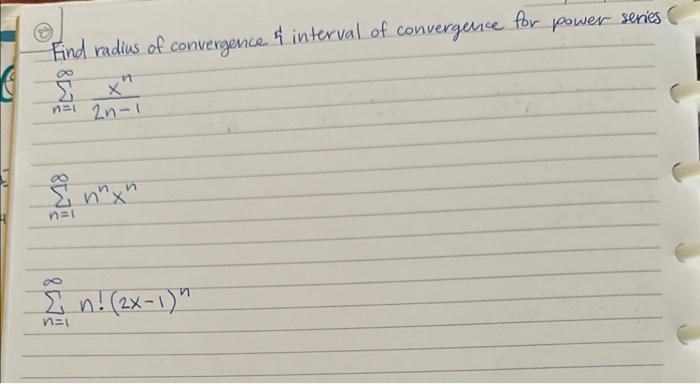 ② Find radius of convergence & interval of convergence for power series
∞
Σ xⁿ / 2n-1
n=1
∞
Σ nⁿxⁿ
n=1
∞
Σ n!(2x-1)ⁿ
n=1